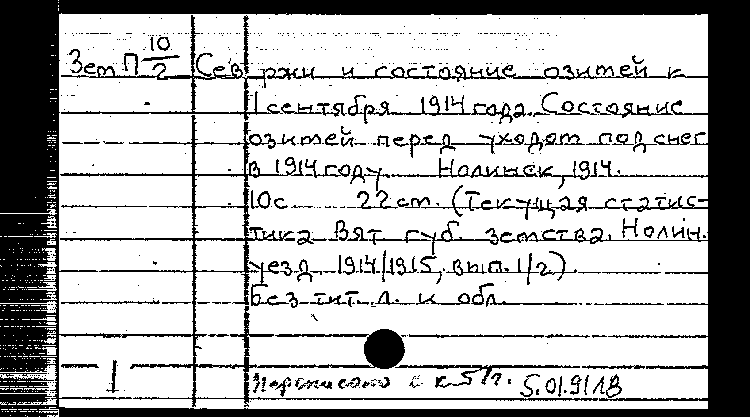 Зем П 10/2 Сев ржи и состояние озитей к
1 сентября 1914 года. Состояние
озитей перед уходот под снег
в 1914 году Нолинск, 1914.
10с 22 ст. (Текущая статис-
тика Вят губ. земства. Нолин.
уезд 1914/1915, вып. 1/2).
Без тит. л. и обл.
1 Переписано с к 51г. 5.01.9118